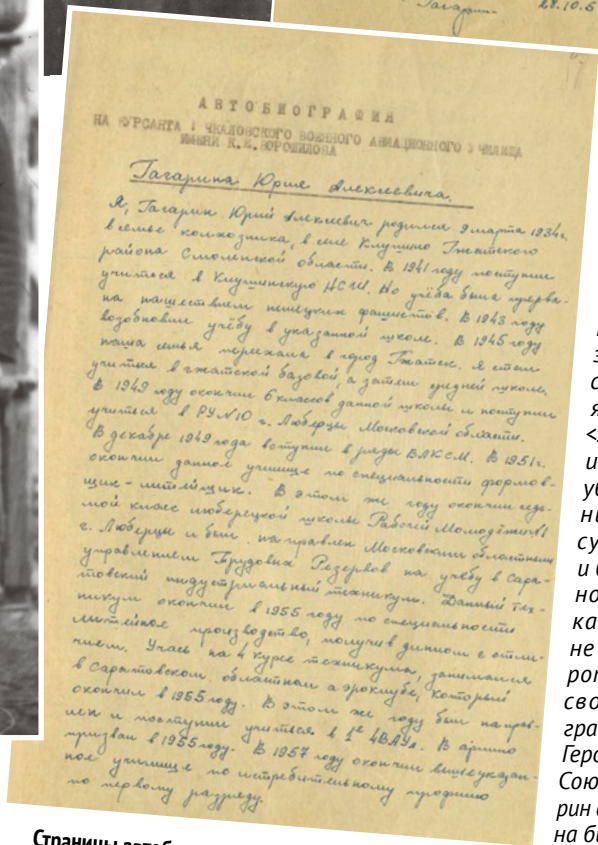 Гагарин 28.10.5
17
АВТОБИОГРАФИЯ
НА КУРСАНТА 1 ЧКАЛОВСКОГО ВОЕННОГО АВИАЦИОННОГО УЧИЛИЩА
ИМЕНИ К.Е.ВОРОШИЛОВА
Гагарина Юрия Алексеевича.
Я, Гагарин Юрий Алексеевич родился 9 марта 1934г.
в семье колхозника, в селе Клушино Гжатского
района Смоленской области. В 1941 году поступил
учиться в Клушинскую НСШ. Но учёба была прерва-
на нашествием немецких фашистов. В 1943 году
возобновил учёбу в указанной школе. В 1945 году
наша семья переехала в город Гжатск. Я стал
учиться в гжатской базовой, а затем средней школе.
В 1949 году окончил 6 классов данной школы и поступил
учиться в РУ№10 г. Люберцы Московской области.
В декабре 1949 года вступил в ряды ВЛКСМ. В 1951г.
окончил данное училище по специальности формов-
щик-литейщик. В этом же году окончил седь-
мой класс люберецкой школы Рабочей Молодёжи №1
г. Люберцы и был направлен Московским областным
управлением Трудовых Резервов на учёбу в Сара-
товский индустриальный техникум. Данный тех-
никум окончил в 1955 году по специальности
литейное производство, получив диплом с отли-
чием. Учась на 4 курсе техникума, занимался
в Саратовском областном аэроклубе, который
окончил в 1955 году. В этом же году был направ-
лен и поступил учиться в 1ое ЧВАУл. В армию
призван в 1955 году. В 1957 году окончил вышеуказан-
ное училище по истребительному профилю
по первому разряду.
Страницы автоб
з
с
я
<
и
уб
ни
су
и
но
ка
не
рог
сво
гра
Геро
Союз
рин
на би